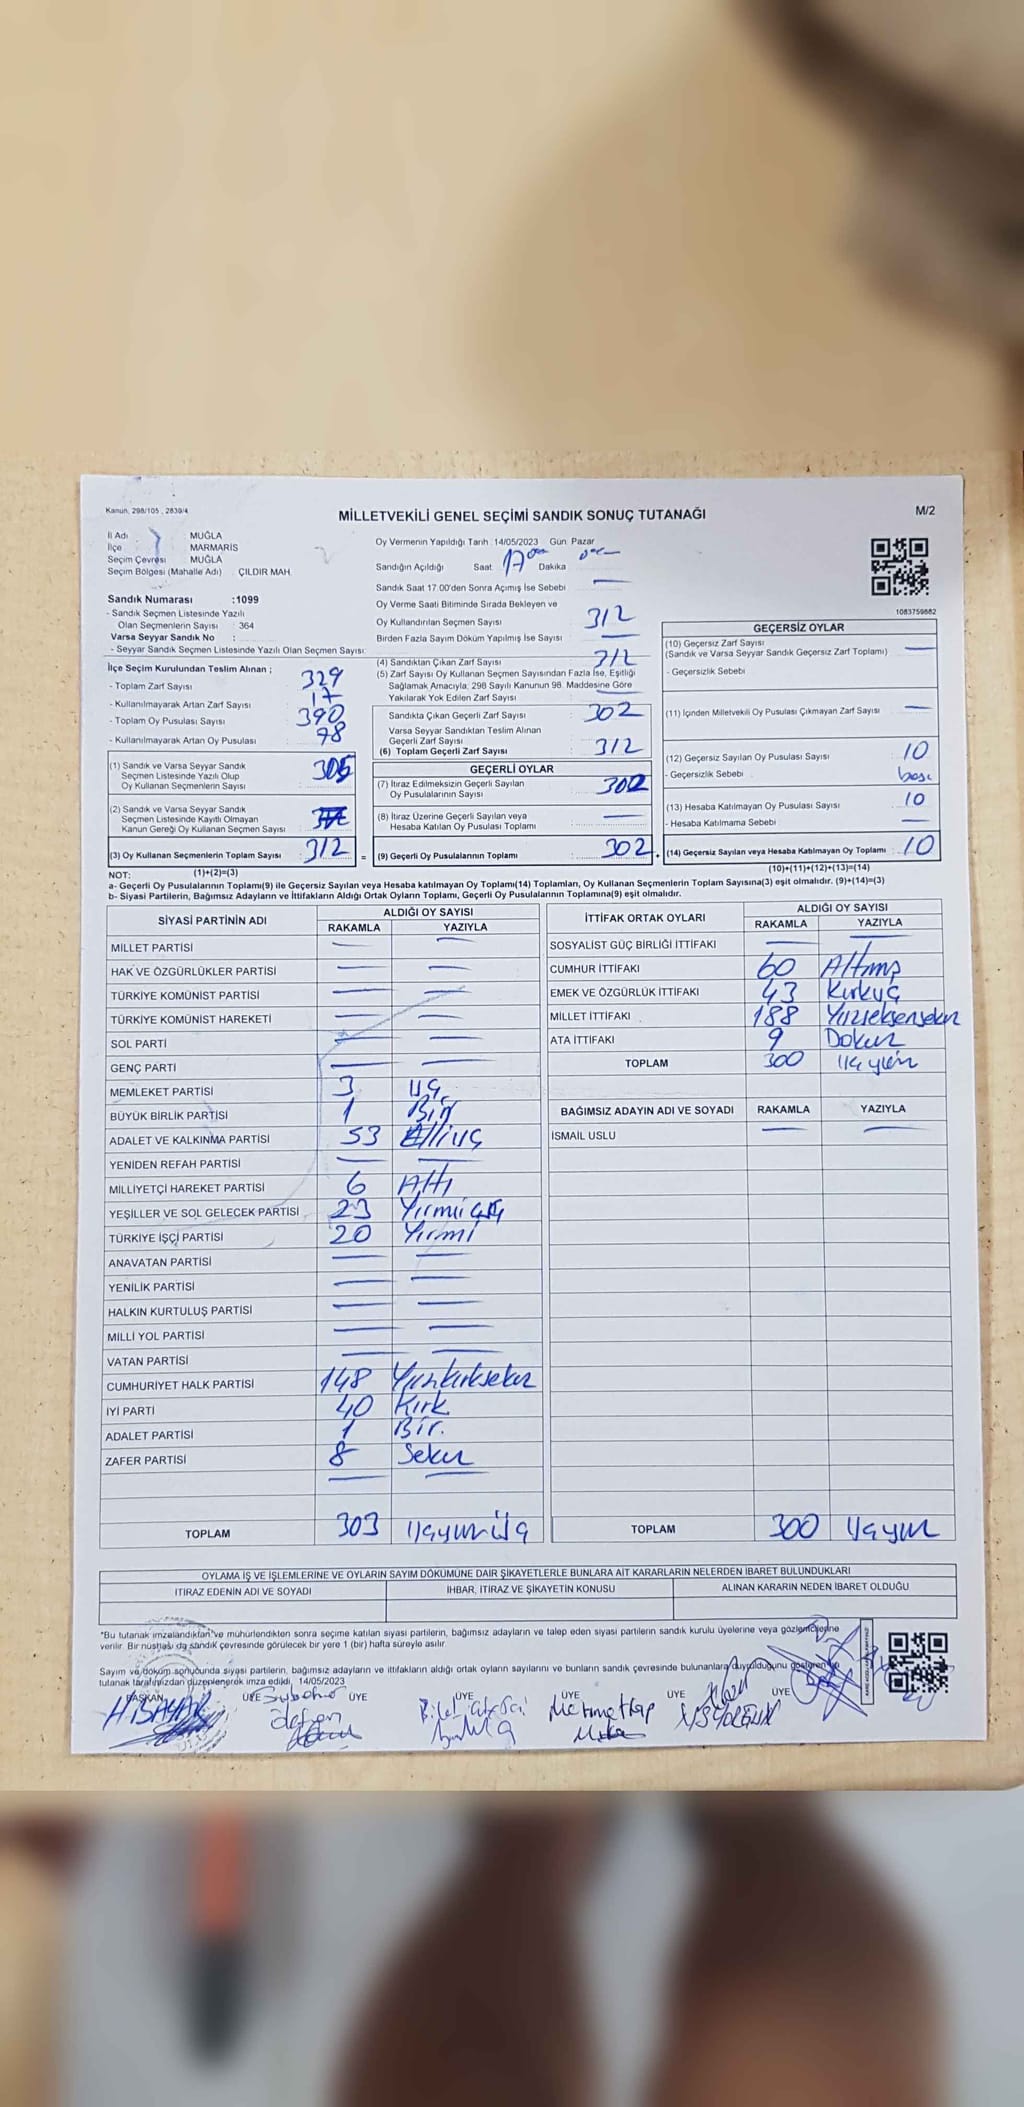 Kanun, 298/105 , 2839/4
MİLLETVEKİLİ GENEL SEÇİMİ SANDIK SONUÇ TUTANAĞI
M/2
İl Adı MUĞLA
İlçe MARMARİS
Seçim Çevresi MUĞLA
Seçim Bölgesi (Mahalle Adı) ÇILDIR MAH.
Sandık Numarası :1099
- Sandık Seçmen Listesinde Yazılı
Olan Seçmenlerin Sayısı : 364
Varsa Seyyar Sandık No :
- Seyyar Sandık Seçmen Listesinde Yazılı Olan Seçmen Sayısı:
İlçe Seçim Kurulundan Teslim Alınan ;
- Toplam Zarf Sayısı 329
- Kullanılmayarak Artan Zarf Sayısı 17
- Toplam Oy Pusulası Sayısı 390
- Kullanılmayarak Artan Oy Pusulası 78
(1) Sandık ve Varsa Seyyar Sandık
Seçmen Listesinde Yazılı Olup
Oy Kullanan Seçmenlerin Sayısı
(2) Sandık ve Varsa Seyyar Sandık
Seçmen Listesinde Kayıtlı Olmayan
Kanun Gereği Oy Kullanan Seçmen Sayısı
(3) Oy Kullanan Seçmenlerin Toplam Sayısı : 312 =
(1)+(2)=(3)
Oy Vermenin Yapıldığı Tarih 14/05/2023 Gün: Pazar
Sandığın Açıldığı Saat 17 Dakika
Sandık Saat 17.00'den Sonra Açımış İse Sebebi —
Oy Verme Saati Bitiminde Sırada Bekleyen ve
Oy Kullandırılan Seçmen Sayısı 312
Birden Fazla Sayım Döküm Yapılmış İse Sayısı —
(4) Sandıktan Çıkan Zarf Sayısı 312
(5) Zarf Sayısı Oy Kullanan Seçmen Sayısından Fazla İse, Eşitliği
Sağlamak Amacıyla, 298 Sayılı Kanunun 98. Maddesine Göre
Yakılarak Yok Edilen Zarf Sayısı —
Sandıkta Çıkan Geçerli Zarf Sayısı 302
Varsa Seyyar Sandıktan Teslim Alınan
Geçerli Zarf Sayısı
(6) Toplam Geçerli Zarf Sayısı 312
GEÇERLİ OYLAR
(7) İtiraz Edilmeksizin Geçerli Sayılan
Oy Pusulalarının Sayısı 302
(8) İtiraz Üzerine Geçerli Sayılan veya
Hesaba Katılan Oy Pusulası Toplamı —
(9) Geçerli Oy Pusulalarının Toplamı 302 +
1083759882
GEÇERSİZ OYLAR
(10) Geçersiz Zarf Sayısı —
(Sandık ve Varsa Seyyar Sandık Geçersiz Zarf Toplamı)
- Geçersizlik Sebebi
(11) İçinden Milletvekili Oy Pusulası Çıkmayan Zarf Sayısı —
(12) Geçersiz Sayılan Oy Pusulası Sayısı 10
- Geçersizlik Sebebi
(13) Hesaba Katılmayan Oy Pusulası Sayısı 10
- Hesaba Katılmama Sebebi —
(14) Geçersiz Sayılan veya Hesaba Katılmayan Oy Toplamı : 10
(10)+(11)+(12)+(13)=(14)
NOT:
a- Geçerli Oy Pusulalarının Toplamı(9) ile Geçersiz Sayılan veya Hesaba katılmayan Oy Toplamı(14) Toplamları, Oy Kullanan Seçmenlerin Toplam Sayısına(3) eşit olmalıdır. (9)+(14)=(3)
b- Siyasi Partilerin, Bağımsız Adayların ve İttifakların Aldığı Ortak Oyların Toplamı, Geçerli Oy Pusulalarının Toplamına(9) eşit olmalıdır.
SİYASİ PARTİNİN ADI ALDIĞI OY SAYISI
RAKAMLA YAZIYLA
MİLLET PARTİSİ — —
HAK VE ÖZGÜRLÜKLER PARTİSİ — —
TÜRKİYE KOMÜNİST PARTİSİ — —
TÜRKİYE KOMÜNİST HAREKETİ — —
SOL PARTİ — —
GENÇ PARTİ — —
MEMLEKET PARTİSİ 3 Üç
BÜYÜK BİRLİK PARTİSİ 1 Bir
ADALET VE KALKINMA PARTİSİ 53 Elliüç
YENİDEN REFAH PARTİSİ — —
MİLLİYETÇİ HAREKET PARTİSİ 6 Altı
YEŞİLLER VE SOL GELECEK PARTİSİ 23 Yirmiüç
TÜRKİYE İŞÇİ PARTİSİ 20 Yirmi
ANAVATAN PARTİSİ — —
YENİLİK PARTİSİ — —
HALKIN KURTULUŞ PARTİSİ — —
MİLLİ YOL PARTİSİ — —
VATAN PARTİSİ — —
CUMHURİYET HALK PARTİSİ 148 Yüzkırksekiz
İYİ PARTİ 40 Kırk
ADALET PARTİSİ 1 Bir.
ZAFER PARTİSİ 8 Sekiz
TOPLAM 303 Üçyüzüç
İTTİFAK ORTAK OYLARI ALDIĞI OY SAYISI
RAKAMLA YAZIYLA
SOSYALİST GÜÇ BİRLİĞİ İTTİFAKI — —
CUMHUR İTTİFAKI 60 Altmış
EMEK VE ÖZGÜRLÜK İTTİFAKI 43 Kırküç
MİLLET İTTİFAKI 188 Yüzseksensekiz
ATA İTTİFAKI 9 Dokuz
TOPLAM 300 Üçyüz
BAĞIMSIZ ADAYIN ADI VE SOYADI RAKAMLA YAZIYLA
İSMAİL USLU — —
TOPLAM 300 Üçyüz
OYLAMA İŞ VE İŞLEMLERİNE VE OYLARIN SAYIM DÖKÜMÜNE DAİR ŞİKAYETLERLE BUNLARA AİT KARARLARIN NELERDEN İBARET BULUNDUKLARI
İTİRAZ EDENİN ADI VE SOYADI İHBAR, İTİRAZ VE ŞİKAYETİN KONUSU ALINAN KARARIN NEDEN İBARET OLDUĞU
"Bu tutanak imzalandıktan ve mühürlendikten sonra seçime katılan siyasi partilerin, bağımsız adayların ve talep eden siyasi partilerin sandık kurulu üyelerine veya gözlemcilerine
verilir. Bir nüshası da sandık çevresinde görülecek bir yere 1 (bir) hafta süreyle asılır.
Sayım ve döküm sonucunda siyasi partilerin, bağımsız adayların ve ittifakların aldığı ortak oyların sayılarını ve bunların sandık çevresinde bulunanlara duyulduğunu gösteren
tutanak tarafımızdan düzenlenerek imza edildi. 14/05/2023
BAŞKAN ÜYE ÜYE ÜYE ÜYE ÜYE ÜYE